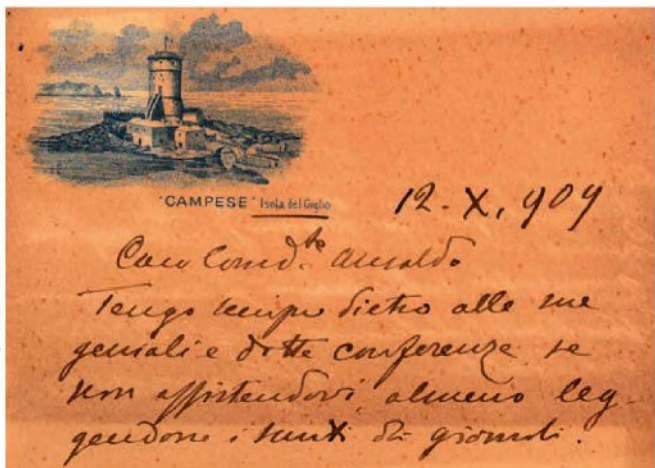 "CAMPESE" Isola del Giglio
12. X, 909
Caro Comd.te Ansaldo
Tengo sempre dietro alle sue
geniali e dotte conferenze se
non assistendovi, almeno leg-
gendone i sunti dei giornali.